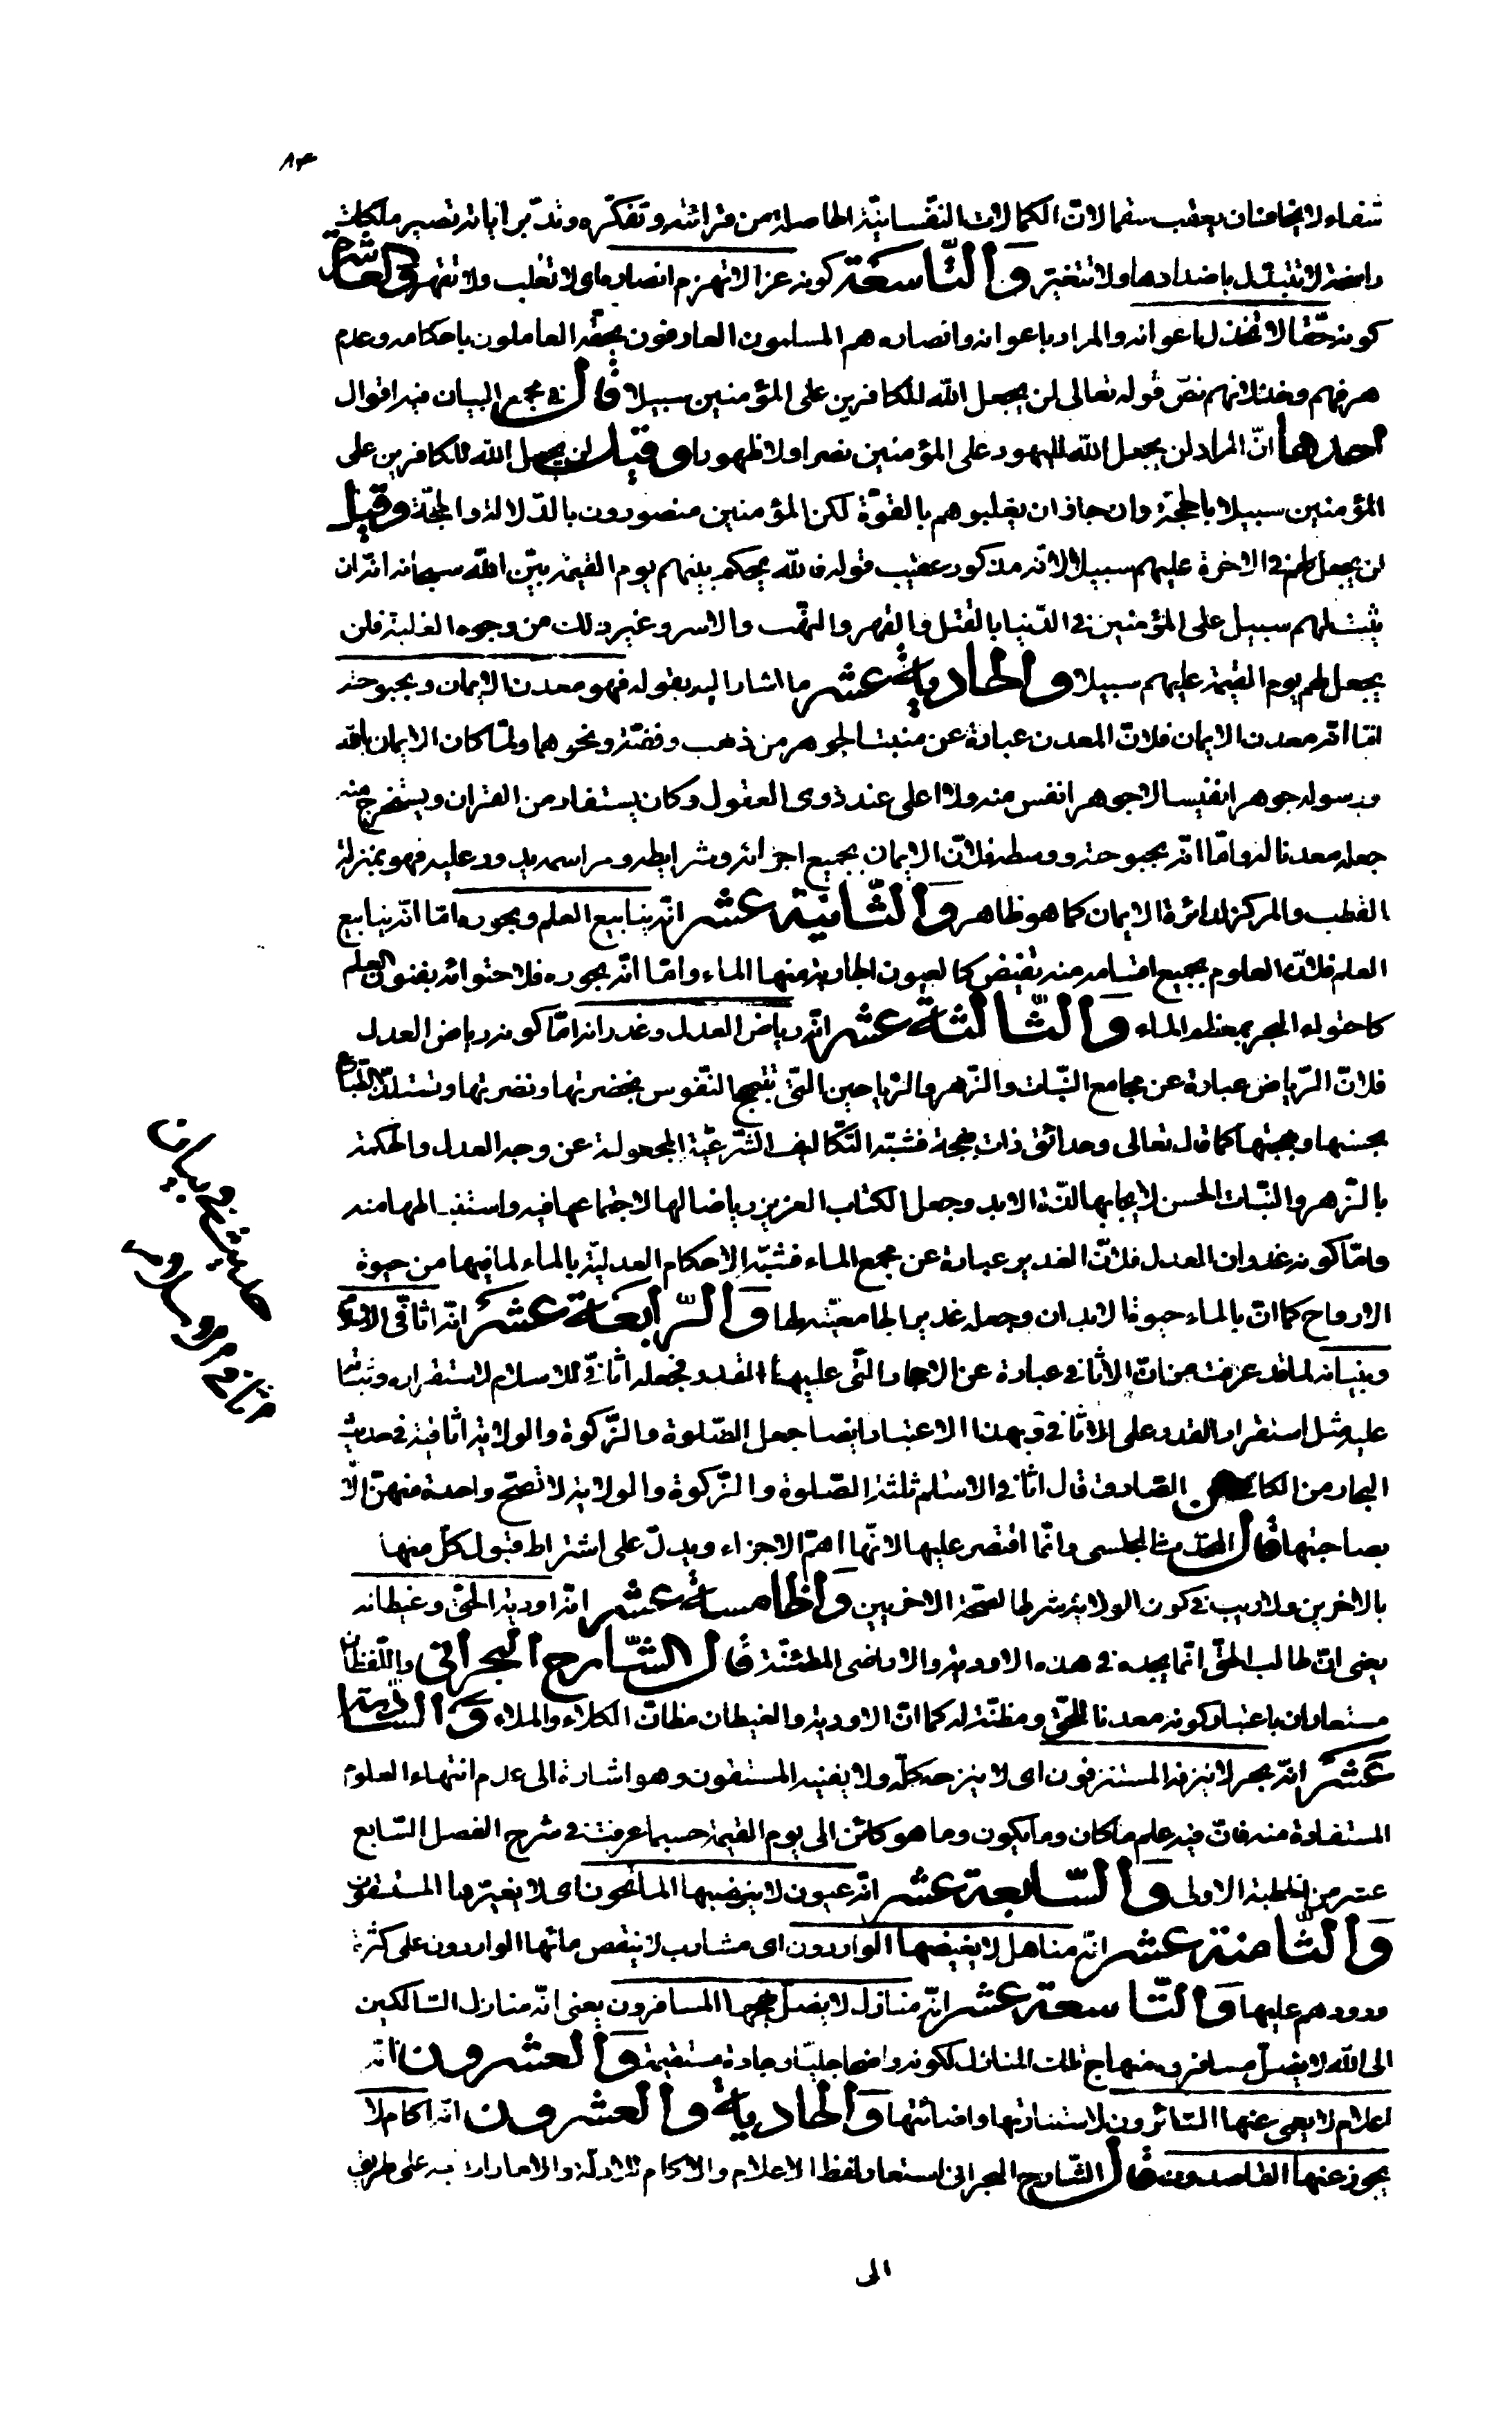 ۸۳
شفاء لا يخاف ان يعقب سقما لانّ الكمالات النّفسانيّة الحاصلة من قرائته و تفكّره و تدبّر اياته تصير ملكات
راسخة لا تتبدّل باضدادها ولا تتغيّر وَالتّاسعَة كونه عزا لا تهزم انصاره اى لا تغلب ولا تقهر والعاشرة
كونه حقّا لا تخذل اعوانه والمراد باعوانه و انصاره هم المسلمون العارفون بحقّه العاملون باحكامه و عدم
هزمهم و خذلانهم نصّ قوله تعالى لن يجعل الله للكافرين على المؤمنين سبيلا قال في مجمع البيان فيه اقوال
احدها انّ المراد لن يجعل الله لليهود على المؤمنين نصرا ولا ظهورا وقيل لن يجعل الله للكافرين على
المؤمنين سبيلا بالحجّة وان جاز ان يغلبوهم بالقوّة لكن المؤمنين منصورون بالدّلالة والحجّة وقيل
لن يجعل لهم في الاخرة عليهم سبيلا لانّه مذكور عقيب قوله فالله يحكم بينهم يوم القيمة بيّن الله سبحانه انّه ان
يثبت لهم سبيل على المؤمنين في الدّنيا بالقتل والقهر والنّهب والاسر و غير ذلك من وجوه الغلبة فلن
يجعل لهم يوم القيمة عليهم سبيلا والحادية عشر ما اشار اليه بقوله فهو معدن الايمان و بحبوحته
امّا انّه معدن الايمان فلانّ المعدن عبارة عن منبت الجوهر من ذهب و فضّة و نحوهما ولمّا كان الايمان بالله
و رسوله جوهرا نفيسا لا جوهر انفس منه ولا اعلى عند ذوى العقول و كان يستفاد من القران و يستخرج منه
جعله معدنا له و امّا انّه بحبوحته و وسطه فلانّ الايمان بجميع اجزائه و شرايطه و مراسمه يدور عليه فهو بمنزلة
القطب والمركز لدائرة الايمان كما هو ظاهر وَالثّانية عشر انّه ينابيع العلم و بحوره امّا انّه ينابيع
العلم فلانّ العلوم بجميع اقسامه منه تفيض كالعيون الجارية منها الماء و امّا انّه بحوره فلاحتوائه بفنون العلم
كاحتواء البحر بمعظم الماء وَالثّالثة عشر انّه رياض العدل و غدرانه امّا كونه رياض العدل
فلانّ الرّياض عبارة عن مجامع النّبات والزّهر والرّياحين الّتى تبتهج النّفوس بخضرتها و نضرتها و تستلذّ الطّباع
بحسنها و بهجتها كما قال تعالى و حدائق ذات بهجة فشبّه التّكاليف الشّرعيّة المجعولة عن وجه العدل والحكمة
بالزّهر والنّبات الحسن لايجابها لذّة الابد و جعل الكتاب العزيز رياضا لها لاجتماعها فيه واستنباطها منه
و امّا كونه غدران العدل فلانّ الغدير عبارة عن مجمع الماء فشبّه الاحكام العدليّة بالماء لما فيها من حيوة
الارواح كما انّ بالماء حيوة الابدان و جعله غديرا لجامعيّته لها وَالرّابعة عشر انّه اثافّى الاسلام
و بنيانه لما قد عرفت من انّ الاثافى عبارة عن الاحجار الّتى عليها القدر فجعله اثافىّ للاسلام لاستقراره و ثباته
عليه مثل استقرار القدر على الاثافى و بهذا الاعتبار ايضا جعل الصّلوة والزّكوة والولاية اثافيه في حديث
البحار من الكافي عن الصّادق قال اثافى الاسلام ثلثة الصّلوة والزّكوة والولاية لا تصحّ واحدة منهنّ الّا
بصاحبتها قال المحدّث المجلسى و انّما اقتصر عليها لانّها اهمّ الاجزاء و يدلّ على اشتراط قبول كلّ منها
بالاخرين ولا ريب في كون الولاية شرطا لصحّة الاخريين وَالخامسة عشر انّه اودية الحقّ و غيطانه
يعنى انّ طالب الحقّ انّما يجده في هذه الاودية والاراضى المطمئنّة قال الشّارح البحرانى واللّفظان
مستعاران باعتبار كونه معدنا للحقّ و مظنّة له كما انّ الاودية والغيطان مظانّ الكلاء والماء وَالسّادسة
عَشَر انّه بحر لا ينزفه المستنزفون اى لا ينزحه كلّه ولا يفنيه المستقون و هو اشارة الى عدم انتهاء العلوم
المستفادة منه فانّ فيه علم ما كان و ما يكون و ما هو كائن الى يوم القيمة حسبما عرفته في شرح الفصل السّابع
عشر من الخطبة الاولى وَالسّابعة عشر انّه عيون لا ينضبها الماتحون اى لا يغيّرها المستقون
وَالثّامنة عشر انّه مناهل لا يغيضها الواردون اى مشارب لا ينقص مائها الواردون على كثرة
ورودهم عليها وَالتّاسعة عشر انّه منازل لا يضلّ نهجها المسافرون يعنى انّه منازل السّالكين
الى الله لا يضلّ مسافروه منهاج تلك المنازل لكونه واضحا جليّا و جادة مستقيمة وَالعشرون انّه
اعلام لا يعمى عنها السّائرون لاستنارتها و اضائتها وَالحادية والعشرون انّه اكام لا
يجوز عنها القاصدون قال الشّارح البحرانى استعار لفظ الاعلام والاكام للادلّة والامارات فيه على طريق
الى
حديث في بيان